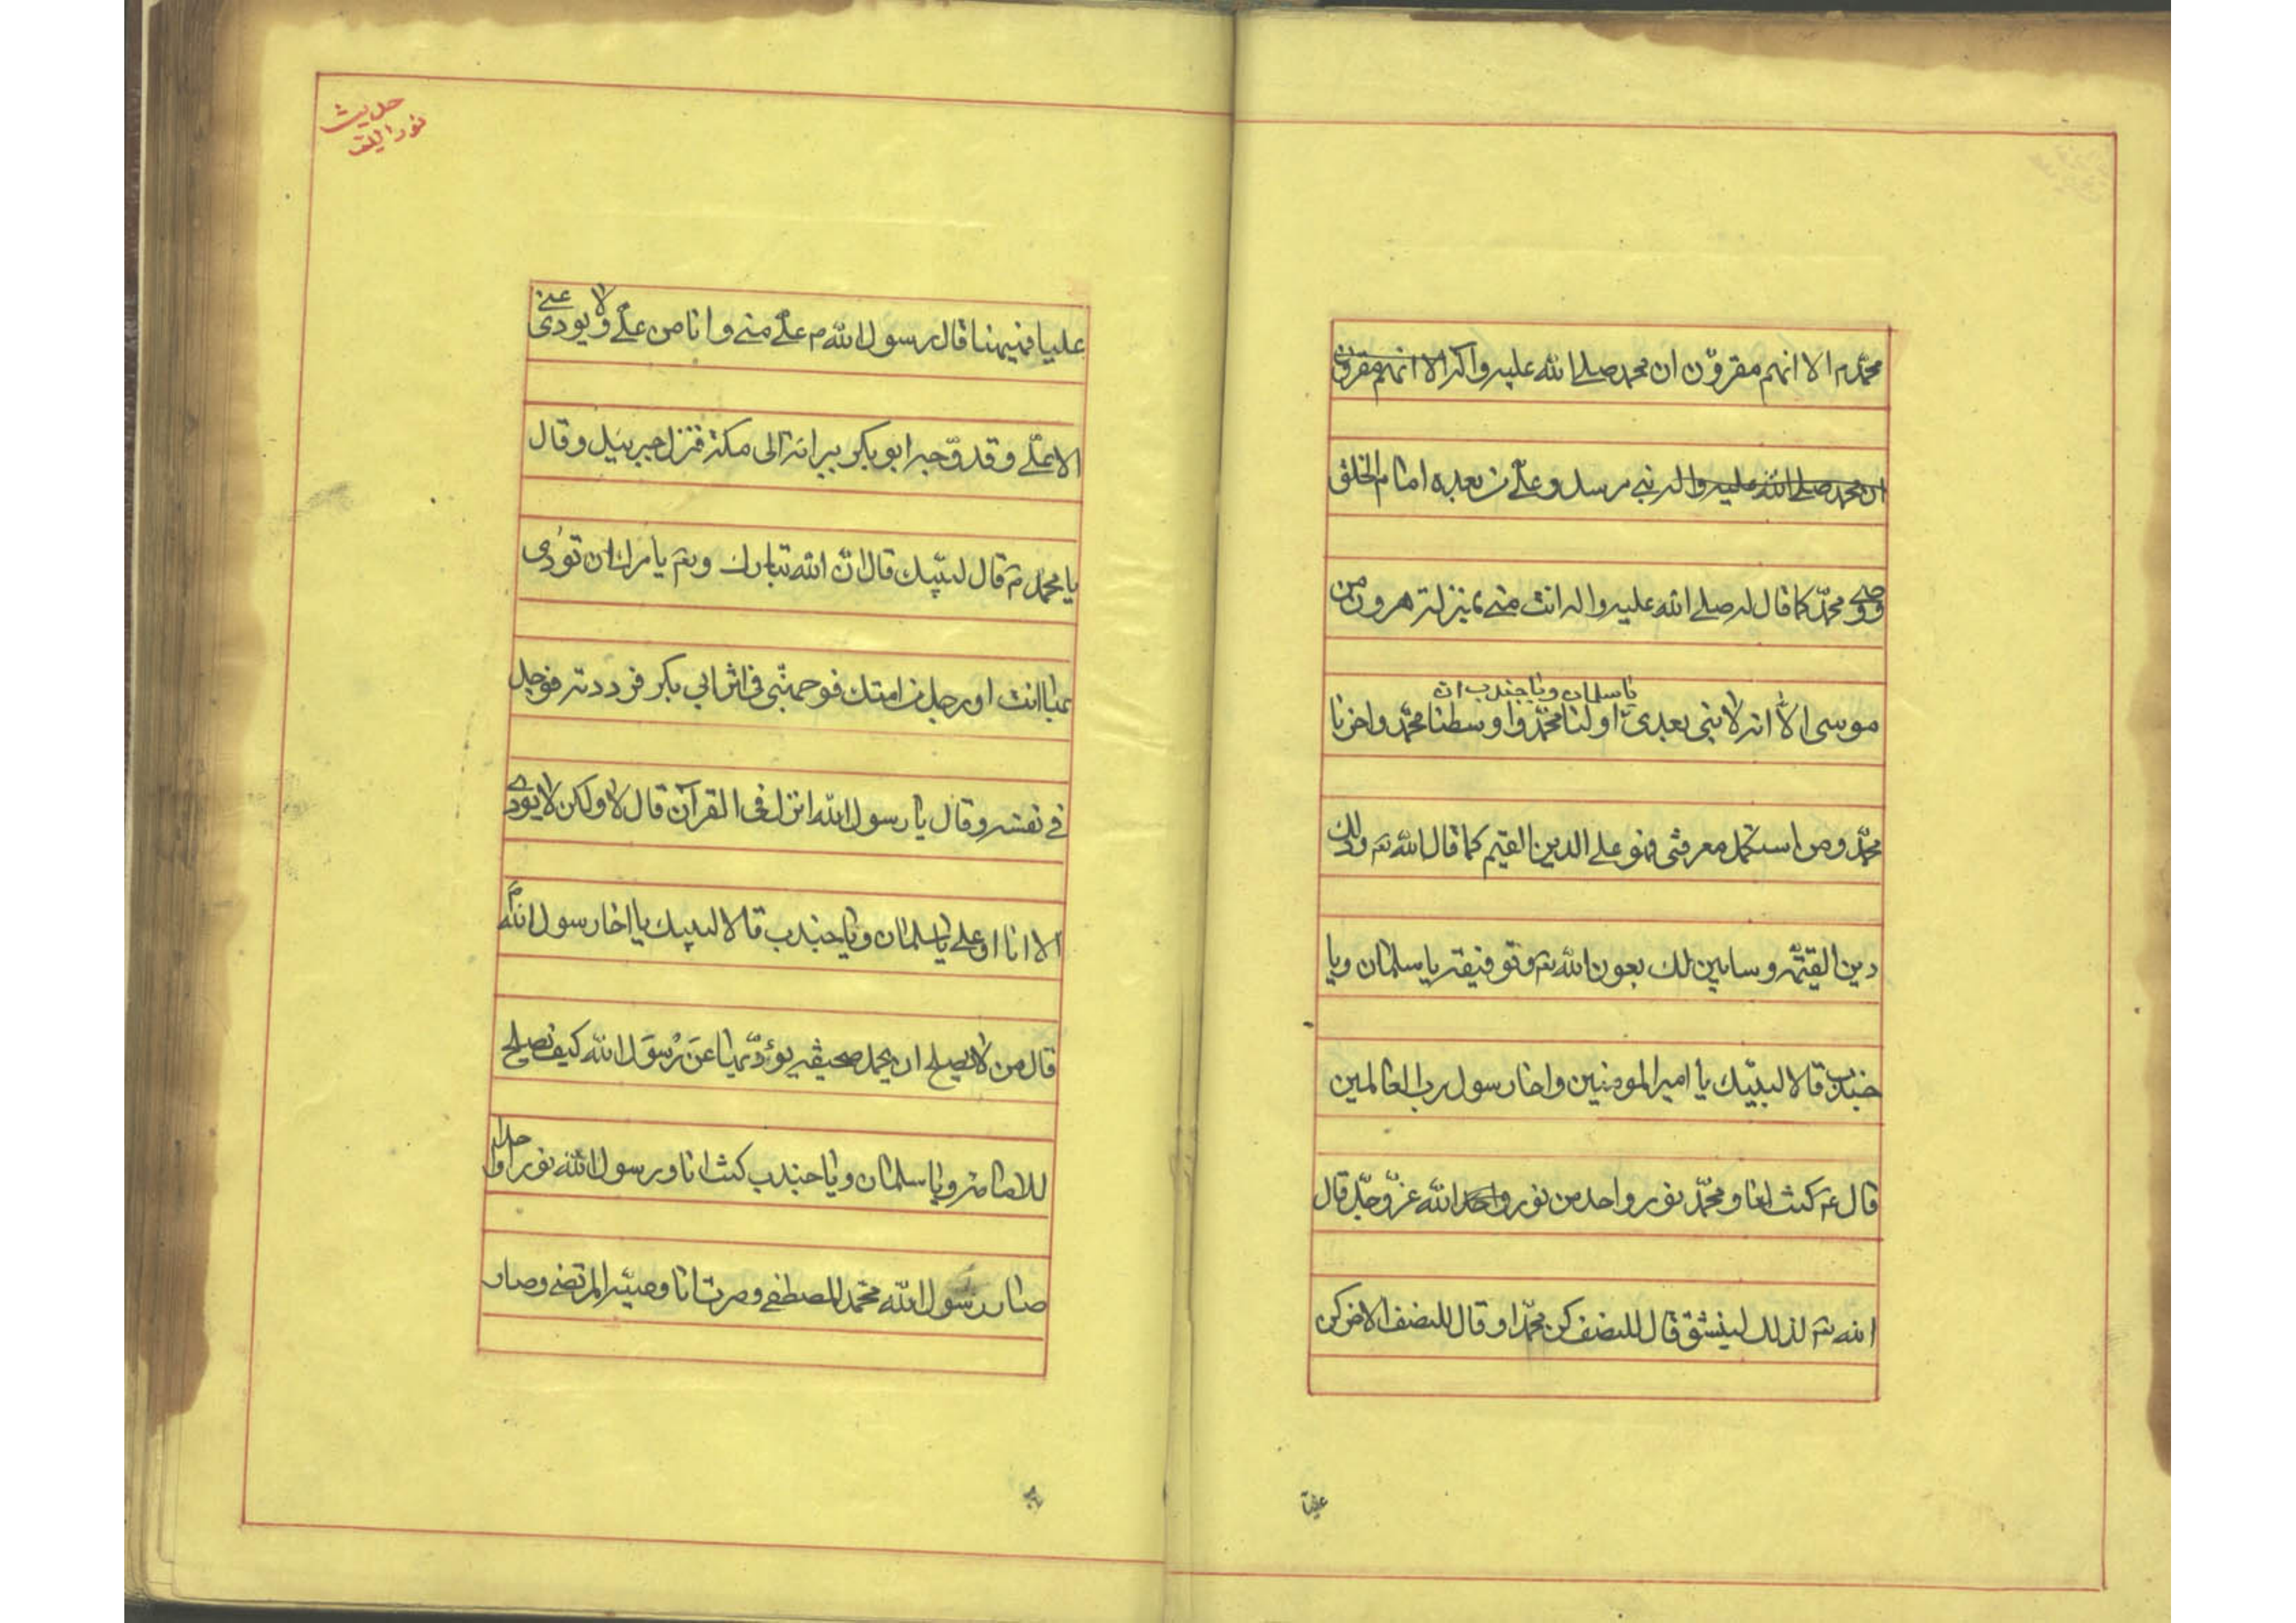 محمّد م الا انهم مقرّون ان محمد صلے الله عليه واله الا انهم مقرون
ان محمد صلے الله عليه واله نبي مرسل و علّے من بعده امام الخلق
ووصے محمّد كما قال له صلے الله عليه واله انت منے بمنزلة هرون من
موسى الّا انه لا نبي بعدي اولنا محمّد واوسطنا محمّد واخرنا
يا سلمان ويا جندب ان
محمّد ومن استكمل معرفتى فهو على الدين القيم كما قال الله تع وذلك
دين القيّمة وسابين لك بعون الله تع وتوفيقه يا سلمان ويا
جندب قالا لبيّك يا امير المومنين واخا رسول رب العالمين
قال ع كنت انا و محمّد نور واحد من نور واحد الله عزّ وجلّ قال
الله تع لذلك لينشق قال للنصف كن محمّدا وقال للنصف الاخر كن
عليا
حديث
نورانيت
عليا فمنهنا قال رسول الله م علّے منے وانا من علّے ولا يودى عنے
الا علّے وقد وّجه ابو بكر ببراءة الى مكة فنزل جبرئيل وقال
يا محمّد م قال لبيّك قال انّ الله تبارك وتع يامرك ان تؤدى
عنها انت او رجل من امتك فوجهني في اثر ابي بكر فرددته فوجل
في نفسه وقال يا رسول الله انزل في القرآن قال لا ولكن لا يودے
الا انا او علے يا سلمان ويا جندب قالا لبيك يا اخا رسول الله م
قال من لا يصلح ان يحمل صحيفه يؤدّيها عن رسول الله كيف تصلح
للامامة ويا سلمان ويا جندب كنت انا ورسول الله نورا واحدا
صار رسول الله محمّد المصطفے وصرت انا وصيّه المرتضے وصار